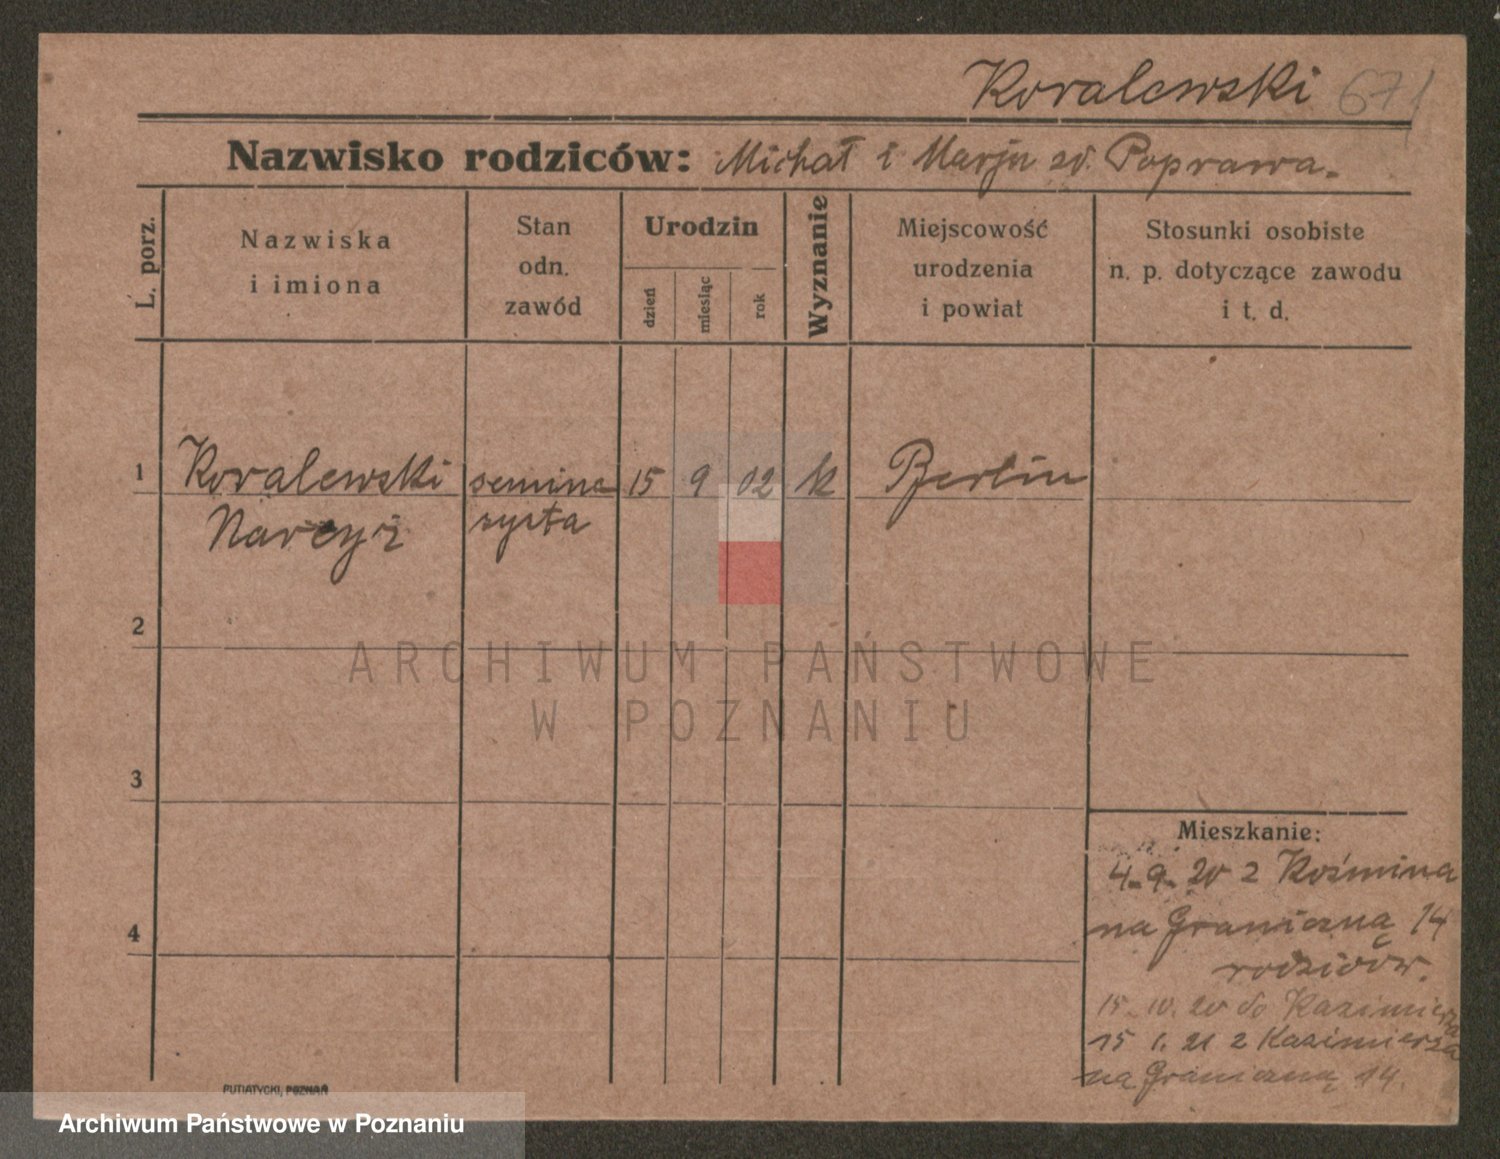 Kovalewski 671
Nazwisko rodziców: Michał i Marja zd. Poprawa.
L. porz.
Nazwiska
i imiona
Stan
odn.
zawód
Urodzin
dzień
miesiąc
rok
Wyznanie
Miejscowość
urodzenia
i powiat
Stosunki osobiste
n. p. dotyczące zawodu
i t. d.
1 Kovalewski semina 15 9 02 k Berlin
Narcyz rysta
2
3
4
Mieszkanie:
4.9.20 z Koźmina
na Graniczną 14
rodziców.
15.10.20 do Kazimierza
15 1. 21 z Kazimierza
na Graniczną 14.
PUTIATYCKI, POZNAŃ
ARCHIWUM PAŃSTWOWE
W POZNANIU
Archiwum Państwowe w Poznaniu